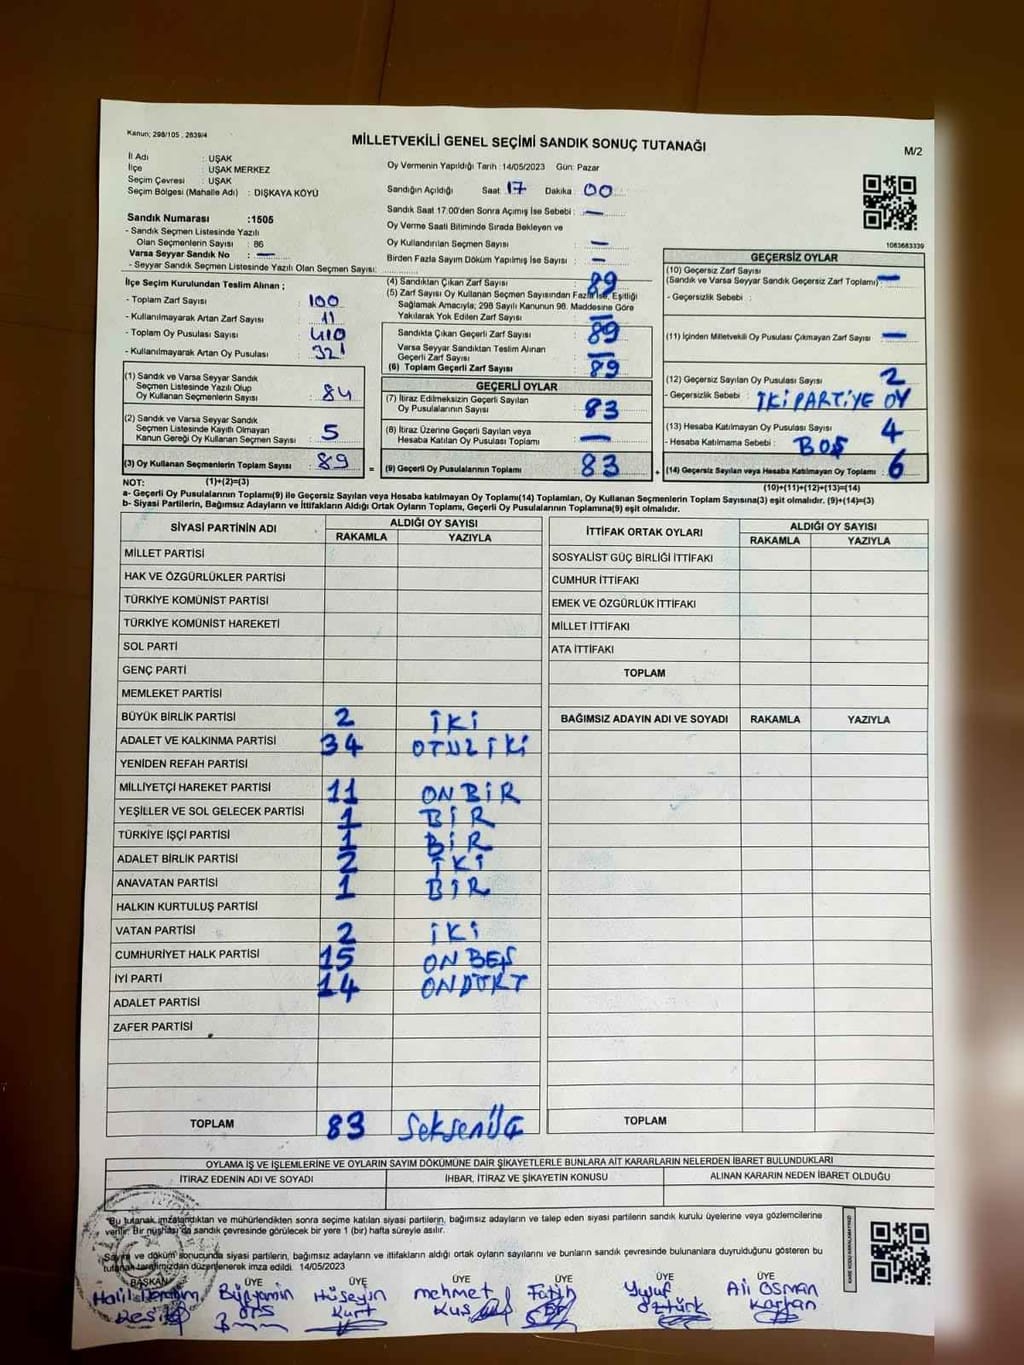 Kanun; 298/105 , 2839/4
MİLLETVEKİLİ GENEL SEÇİMİ SANDIK SONUÇ TUTANAĞI
M/2
İl Adı : UŞAK
İlçe : UŞAK MERKEZ
Seçim Çevresi : UŞAK
Seçim Bölgesi (Mahalle Adı) : DIŞKAYA KÖYÜ
Sandık Numarası :1505
- Sandık Seçmen Listesinde Yazılı
Olan Seçmenlerin Sayısı : 86
Varsa Seyyar Sandık No : —
- Seyyar Sandık Seçmen Listesinde Yazılı Olan Seçmen Sayısı:
Oy Vermenin Yapıldığı Tarih : 14/05/2023 Gün: Pazar
Sandığın Açıldığı Saat 17 Dakika 00
Sandık Saat 17:00'den Sonra Açımış İse Sebebi : —
Oy Verme Saati Bitiminde Sırada Bekleyen ve
Oy Kullandırılan Seçmen Sayısı : —
Birden Fazla Sayım Döküm Yapılmış İse Sayısı : —
1083683339
İlçe Seçim Kurulundan Teslim Alınan ;
- Toplam Zarf Sayısı : 100
- Kullanılmayarak Artan Zarf Sayısı : 11
- Toplam Oy Pusulası Sayısı : 410
- Kullanılmayarak Artan Oy Pusulası : 321
(1) Sandık ve Varsa Seyyar Sandık
Seçmen Listesinde Yazılı Olup
Oy Kullanan Seçmenlerin Sayısı : 84
(2) Sandık ve Varsa Seyyar Sandık
Seçmen Listesinde Kayıtlı Olmayan
Kanun Gereği Oy Kullanan Seçmen Sayısı : 5
(3) Oy Kullanan Seçmenlerin Toplam Sayısı : 89
(1)+(2)=(3)
(4) Sandıktan Çıkan Zarf Sayısı : 89
(5) Zarf Sayısı Oy Kullanan Seçmen Sayısından Fazla İse, Eşitliği
Sağlamak Amacıyla; 298 Sayılı Kanunun 98. Maddesine Göre
Yakılarak Yok Edilen Zarf Sayısı : —
Sandıkta Çıkan Geçerli Zarf Sayısı : 89
Varsa Seyyar Sandıktan Teslim Alınan
Geçerli Zarf Sayısı : —
(6) Toplam Geçerli Zarf Sayısı : 89
GEÇERLİ OYLAR
(7) İtiraz Edilmeksizin Geçerli Sayılan
Oy Pusulalarının Sayısı : 83
(8) İtiraz Üzerine Geçerli Sayılan veya
Hesaba Katılan Oy Pusulası Toplamı : —
= (9) Geçerli Oy Pusulalarının Toplamı : 83 +
GEÇERSİZ OYLAR
(10) Geçersiz Zarf Sayısı
(Sandık ve Varsa Seyyar Sandık Geçersiz Zarf Toplamı) : —
- Geçersizlik Sebebi :
(11) İçinden Milletvekili Oy Pusulası Çıkmayan Zarf Sayısı : —
(12) Geçersiz Sayılan Oy Pusulası Sayısı : 2
- Geçersizlik Sebebi : İKİ PARTİYE OY
(13) Hesaba Katılmayan Oy Pusulası Sayısı : 4
- Hesaba Katılmama Sebebi : BOŞ
(14) Geçersiz Sayılan veya Hesaba Katılmayan Oy Toplamı : 6
(10)+(11)+(12)+(13)=(14)
NOT:
a- Geçerli Oy Pusulalarının Toplamı(9) ile Geçersiz Sayılan veya Hesaba katılmayan Oy Toplamı(14) Toplamları, Oy Kullanan Seçmenlerin Toplam Sayısına(3) eşit olmalıdır. (9)+(14)=(3)
b- Siyasi Partilerin, Bağımsız Adayların ve İttifakların Aldığı Ortak Oyların Toplamı, Geçerli Oy Pusulalarının Toplamına(9) eşit olmalıdır.
SİYASİ PARTİNİN ADI ALDIĞI OY SAYISI
RAKAMLA YAZIYLA
MİLLET PARTİSİ
HAK VE ÖZGÜRLÜKLER PARTİSİ
TÜRKİYE KOMÜNİST PARTİSİ
TÜRKİYE KOMÜNİST HAREKETİ
SOL PARTİ
GENÇ PARTİ
MEMLEKET PARTİSİ
BÜYÜK BİRLİK PARTİSİ 2 İKİ
ADALET VE KALKINMA PARTİSİ 34 OTUZ İKİ
YENİDEN REFAH PARTİSİ
MİLLİYETÇİ HAREKET PARTİSİ 11 ON BİR
YEŞİLLER VE SOL GELECEK PARTİSİ 1 BİR
TÜRKİYE İŞÇİ PARTİSİ 1 BİR
ADALET BİRLİK PARTİSİ 2 İKİ
ANAVATAN PARTİSİ 1 BİR
HALKIN KURTULUŞ PARTİSİ
VATAN PARTİSİ 2 İKİ
CUMHURİYET HALK PARTİSİ 15 ON BEŞ
İYİ PARTİ 14 ONDÖRT
ADALET PARTİSİ
ZAFER PARTİSİ
TOPLAM 83 Seksenüç
İTTİFAK ORTAK OYLARI ALDIĞI OY SAYISI
RAKAMLA YAZIYLA
SOSYALİST GÜÇ BİRLİĞİ İTTİFAKI
CUMHUR İTTİFAKI
EMEK VE ÖZGÜRLÜK İTTİFAKI
MİLLET İTTİFAKI
ATA İTTİFAKI
TOPLAM
BAĞIMSIZ ADAYIN ADI VE SOYADI RAKAMLA YAZIYLA
TOPLAM
OYLAMA İŞ VE İŞLEMLERİNE VE OYLARIN SAYIM DÖKÜMÜNE DAİR ŞİKAYETLERLE BUNLARA AİT KARARLARIN NELERDEN İBARET BULUNDUKLARI
İTİRAZ EDENİN ADI VE SOYADI İHBAR, İTİRAZ VE ŞİKAYETİN KONUSU ALINAN KARARIN NEDEN İBARET OLDUĞU
"Bu tutanak imzalandıktan ve mühürlendikten sonra seçime katılan siyasi partilerin, bağımsız adayların ve talep eden siyasi partilerin sandık kurulu üyelerine veya gözlemcilerine
verilir. Bir nüshası da sandık çevresinde görülecek bir yere 1 (bir) hafta süreyle asılır.
Sayım ve döküm sonucunda siyasi partilerin, bağımsız adayların ve ittifakların aldığı ortak oyların sayılarını ve bunların sandık çevresinde bulunanlara duyrulduğunu gösteren bu
tutanak tarafımızdan düzenlenerek imza edildi. 14/05/2023
BAŞKAN ÜYE ÜYE ÜYE ÜYE ÜYE ÜYE
Halil İbrahim Bünyamin Hüseyin Mehmet Fatih Yusuf Ali OSMAN
Kurt Kuş Öztürk